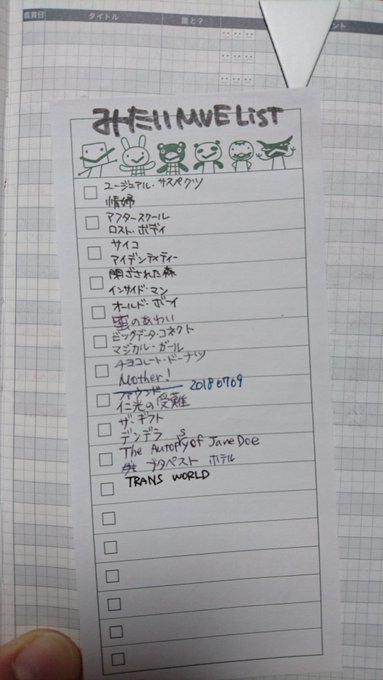 鑑賞日 タイトル 誰と？ ント
みたいMVE LIST
ユージュアル・サスペクツ
情婦
アフタースクール
ロスト・ボディ
サイコ
アイデンティティー
閉ざされた森
インサイド・マン
オールド・ボーイ
蜜のあわい
ビッグデータ・コネクト
マジカル・ガール
チョコレート・ドーナツ
Mother!
20180709
仁光の受難
ザ・ギフト
デンデラ
The Autopsy of Jane Doe
ブタペスト ホテル
TRANS WORLD